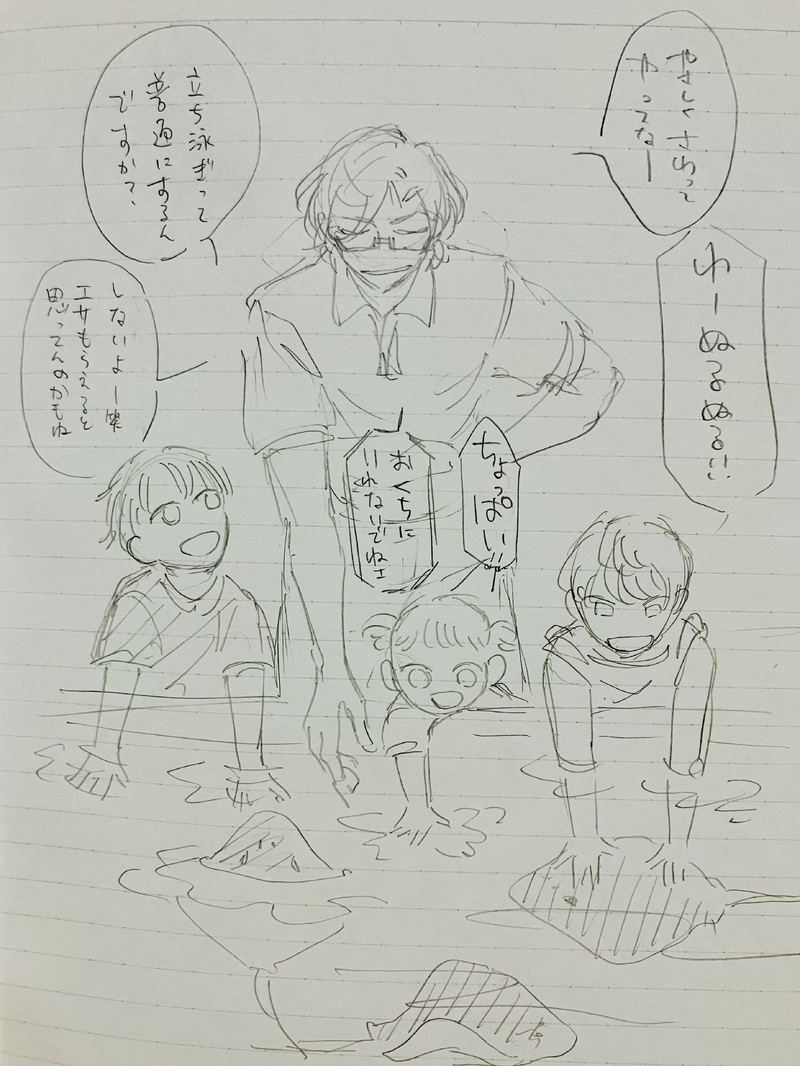 やさしくさわって
やってなー
わーぬるぬるい
立ち泳ぎって
普通にするん
ですか?
しないよー笑
エサもらえると
思ってんのかもね
ちょっぱい!!
おくちに
いれないでねェ